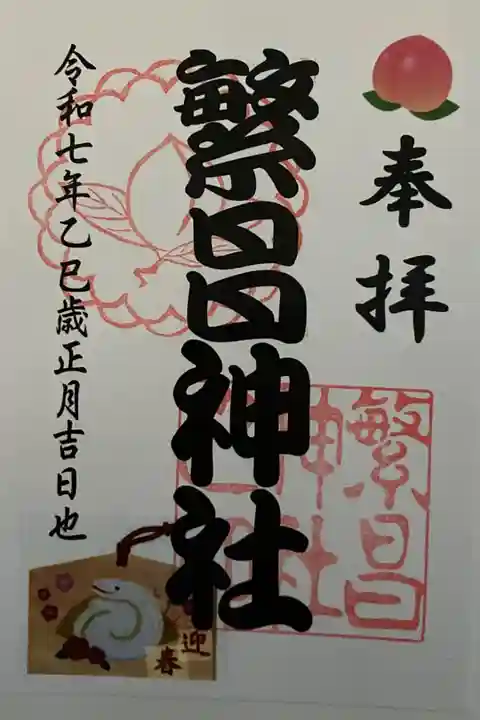 奉拝
繁昌神社
繁昌
神社
令和七年乙巳歳正月吉日也
迎
春